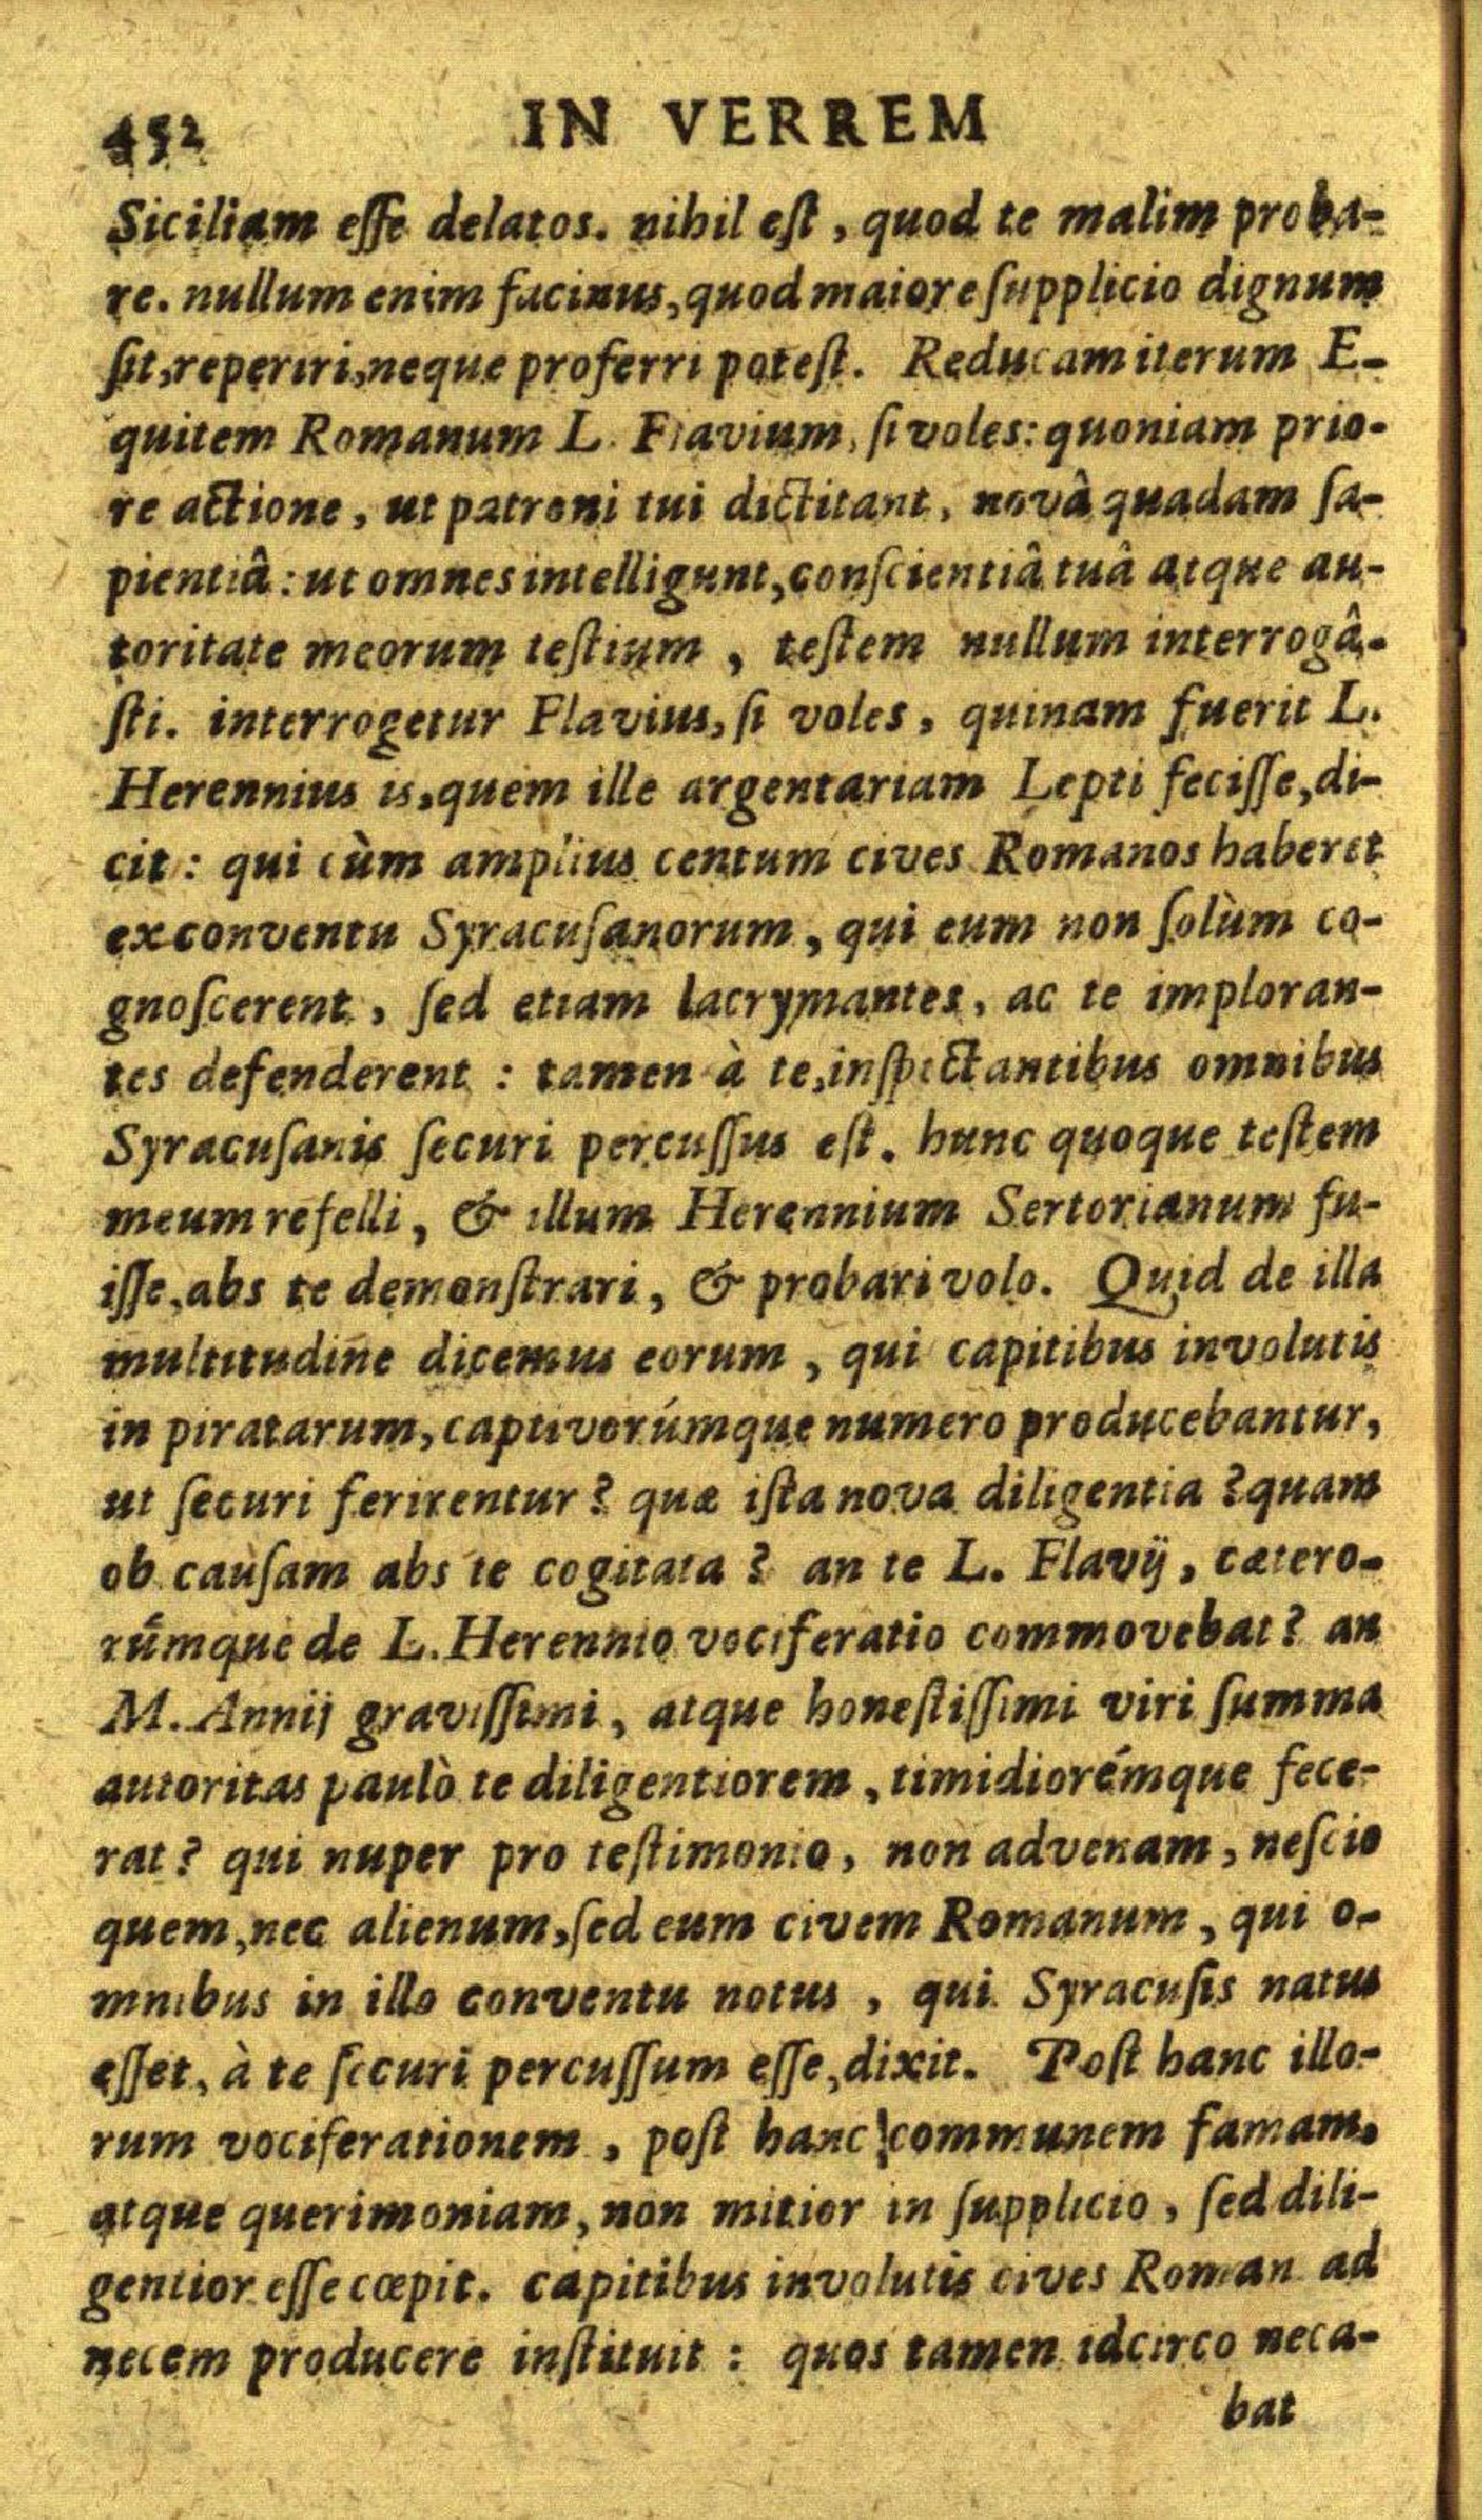 452 IN VERREM
Siciliam eſſe delatos. nihil eſt, quod te malim proba-
re. nullum enim facinus, quod maiore ſupplicio dignum
ſit, reperiri, neque proferri poteſt. Reducam iterum E-
quitem Romanum L. Flavium, ſi voles: quoniam prio-
re actione, ut patroni tui dictitant, novâ quadam ſa-
pientiâ: ut omnes intelligunt, conſcientiâ tuâ atque au-
toritate meorum teſtium, teſtem nullum interrogâ-
ſti. interrogetur Flavius, ſi voles, quinam fuerit L.
Herennius is, quem ille argentariam Lepti feciſſe, di-
cit: qui cùm amplius centum cives Romanos haberet
ex conventu Syracuſanorum, qui eum non ſolùm co-
gnoſcerent, ſed etiam lacrymantes, ac te imploran-
tes defenderent: tamen à te, inſpectantibus omnibus
Syracuſanis ſecuri percuſſus eſt. hunc quoque teſtem
meum refelli, & illum Herennium Sertorianum fu-
iſſe, abs te demonſtrari, & probari volo. Quid de illa
multitudine dicemus eorum, qui capitibus involutis
in piratarum, captivorúmque numero producebantur,
ut ſecuri ferirentur? quæ iſta nova diligentia? quam
ob cauſam abs te cogitata? an te L. Flavij, cætero-
rúmque de L. Herennio vociferatio commovebat? an
M. Annij graviſſimi, atque honeſtiſſimi viri ſumma
autoritas paulò te diligentiorem, timidiorémque fece-
rat? qui nuper pro teſtimonio, non advenam, neſcio
quem, nec alienum, ſed eum civem Romanum, qui o-
mnibus in illo conventu notus, qui Syracuſis natus
eſſet, à te ſecuri percuſſum eſſe, dixit. Poſt hanc illo-
rum vociferationem, poſt hanc communem famam,
atque querimoniam, non mitior in ſupplicio, ſed dili-
gentior eſſe cœpit. capitibus involutis cives Roman ad
necem producere inſtituit: quos tamen idcirco neca-
bat